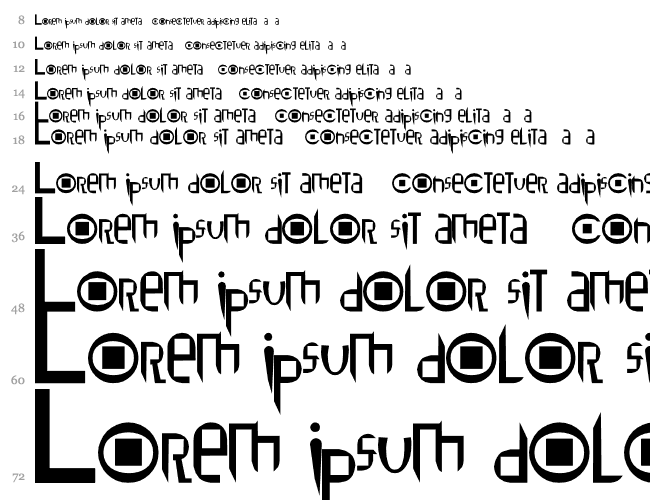 8 Lorem ipsum dolor sit ameta consectetuer adipiscing elita a a
10 Lorem ipsum dolor sit ameta consectetuer adipiscing elita a a
12 Lorem ipsum dolor sit ameta consectetuer adipiscing elita a a
14 Lorem ipsum dolor sit ameta consectetuer adipiscing elita a a
16 Lorem ipsum dolor sit ameta consectetuer adipiscing elita a a
18 Lorem ipsum dolor sit ameta consectetuer adipiscing elita a a
24 Lorem ipsum dolor sit ameta consectetuer adipiscing
36 Lorem ipsum dolor sit ameta con
48 Lorem ipsum dolor sit ame
60 Lorem ipsum dolor si
72 Lorem ipsum dolo